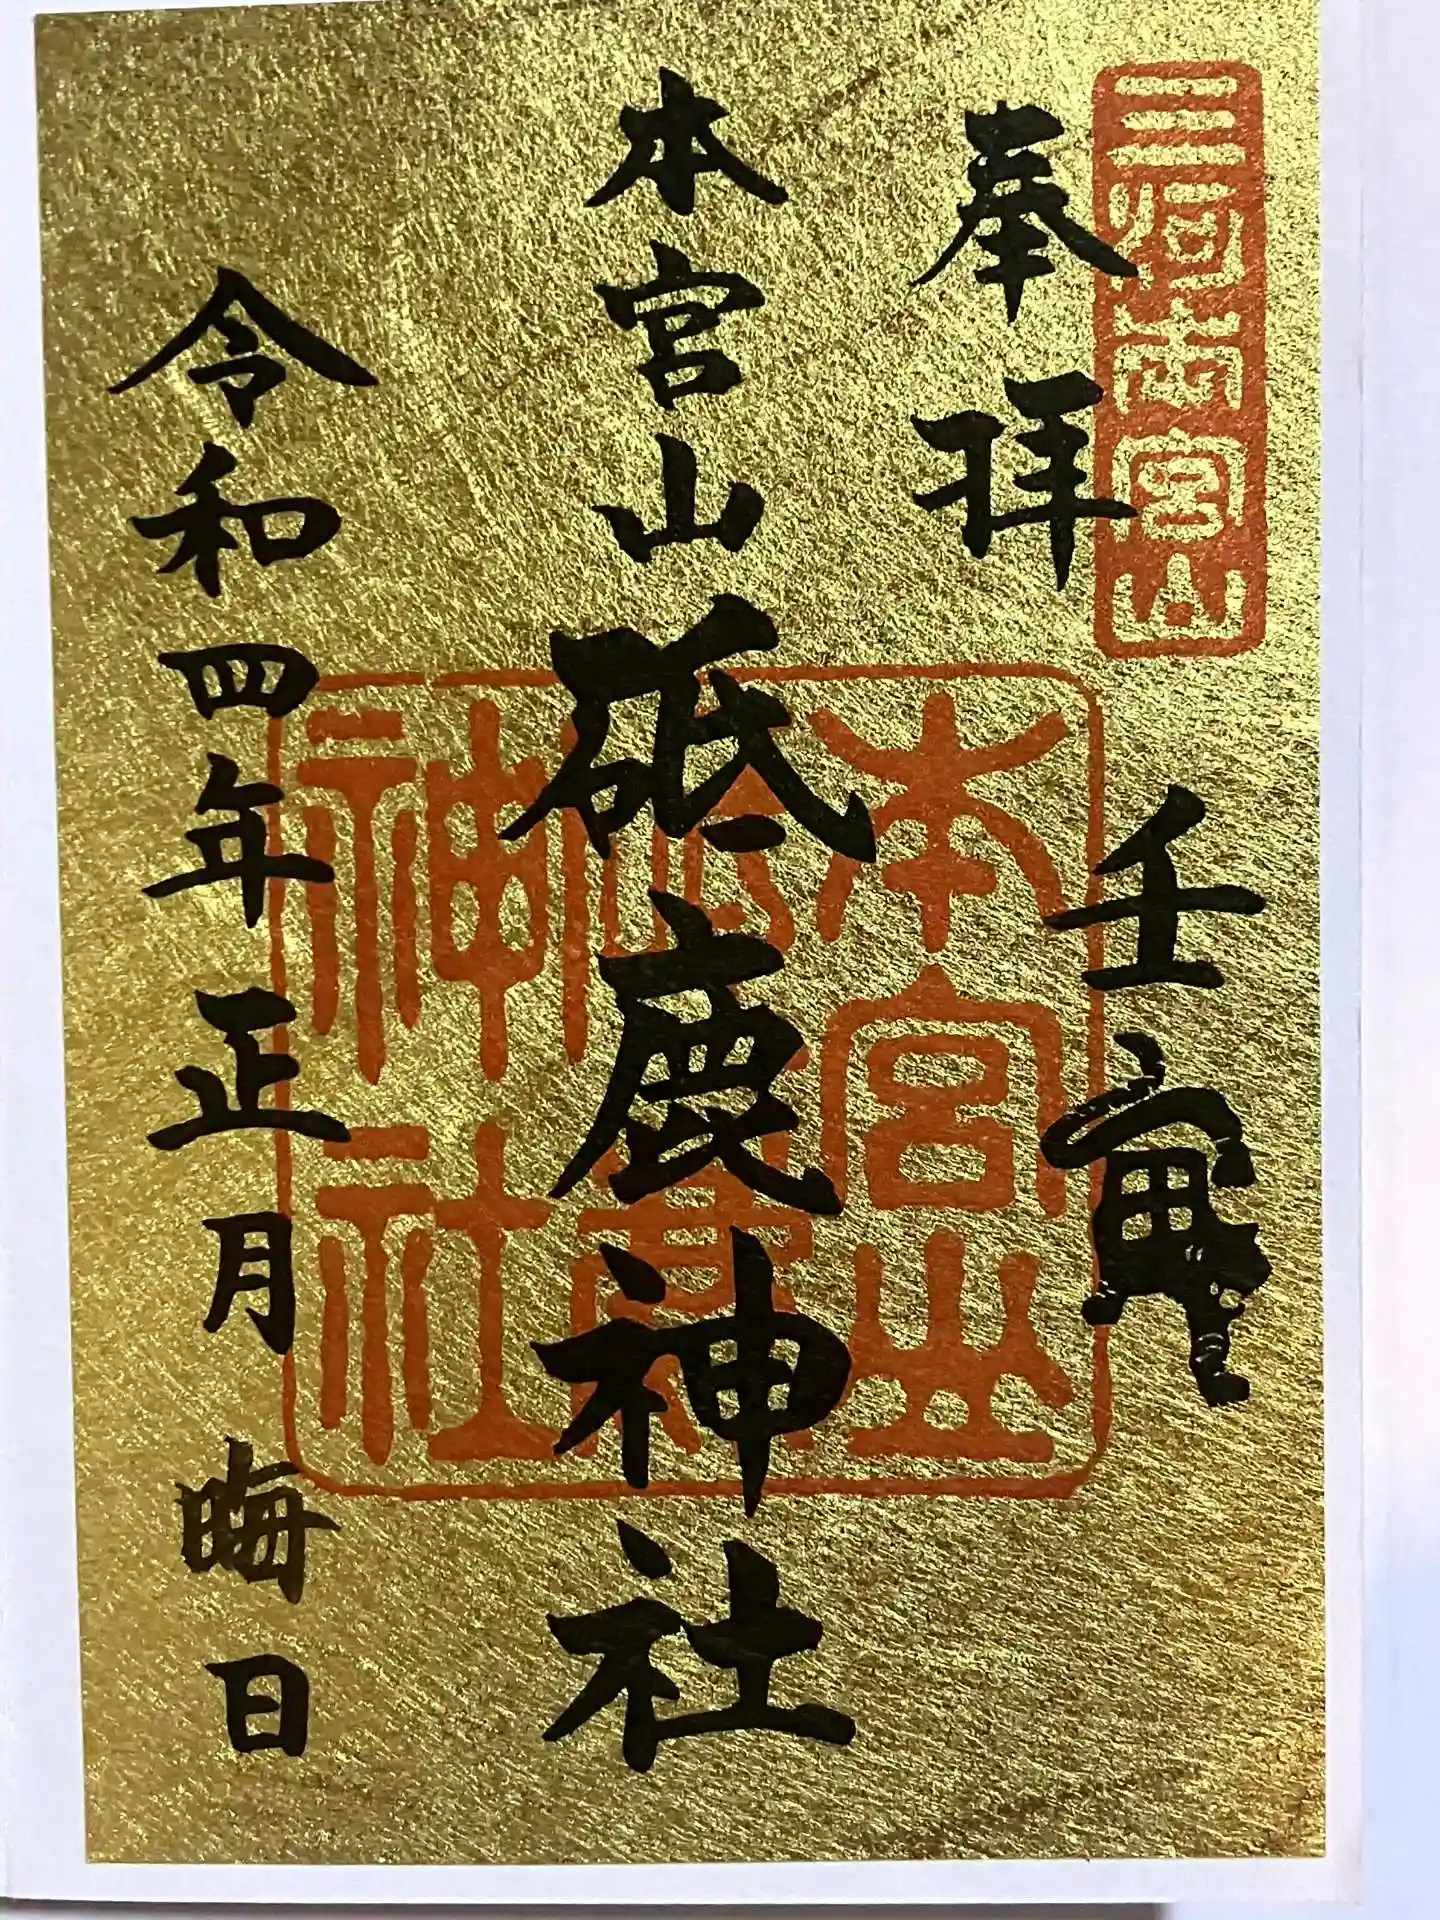 三河本宮山
奉拝
壬寅
本宮山砥鹿神社
本宮山
砥鹿
神社
令和四年正月晦日